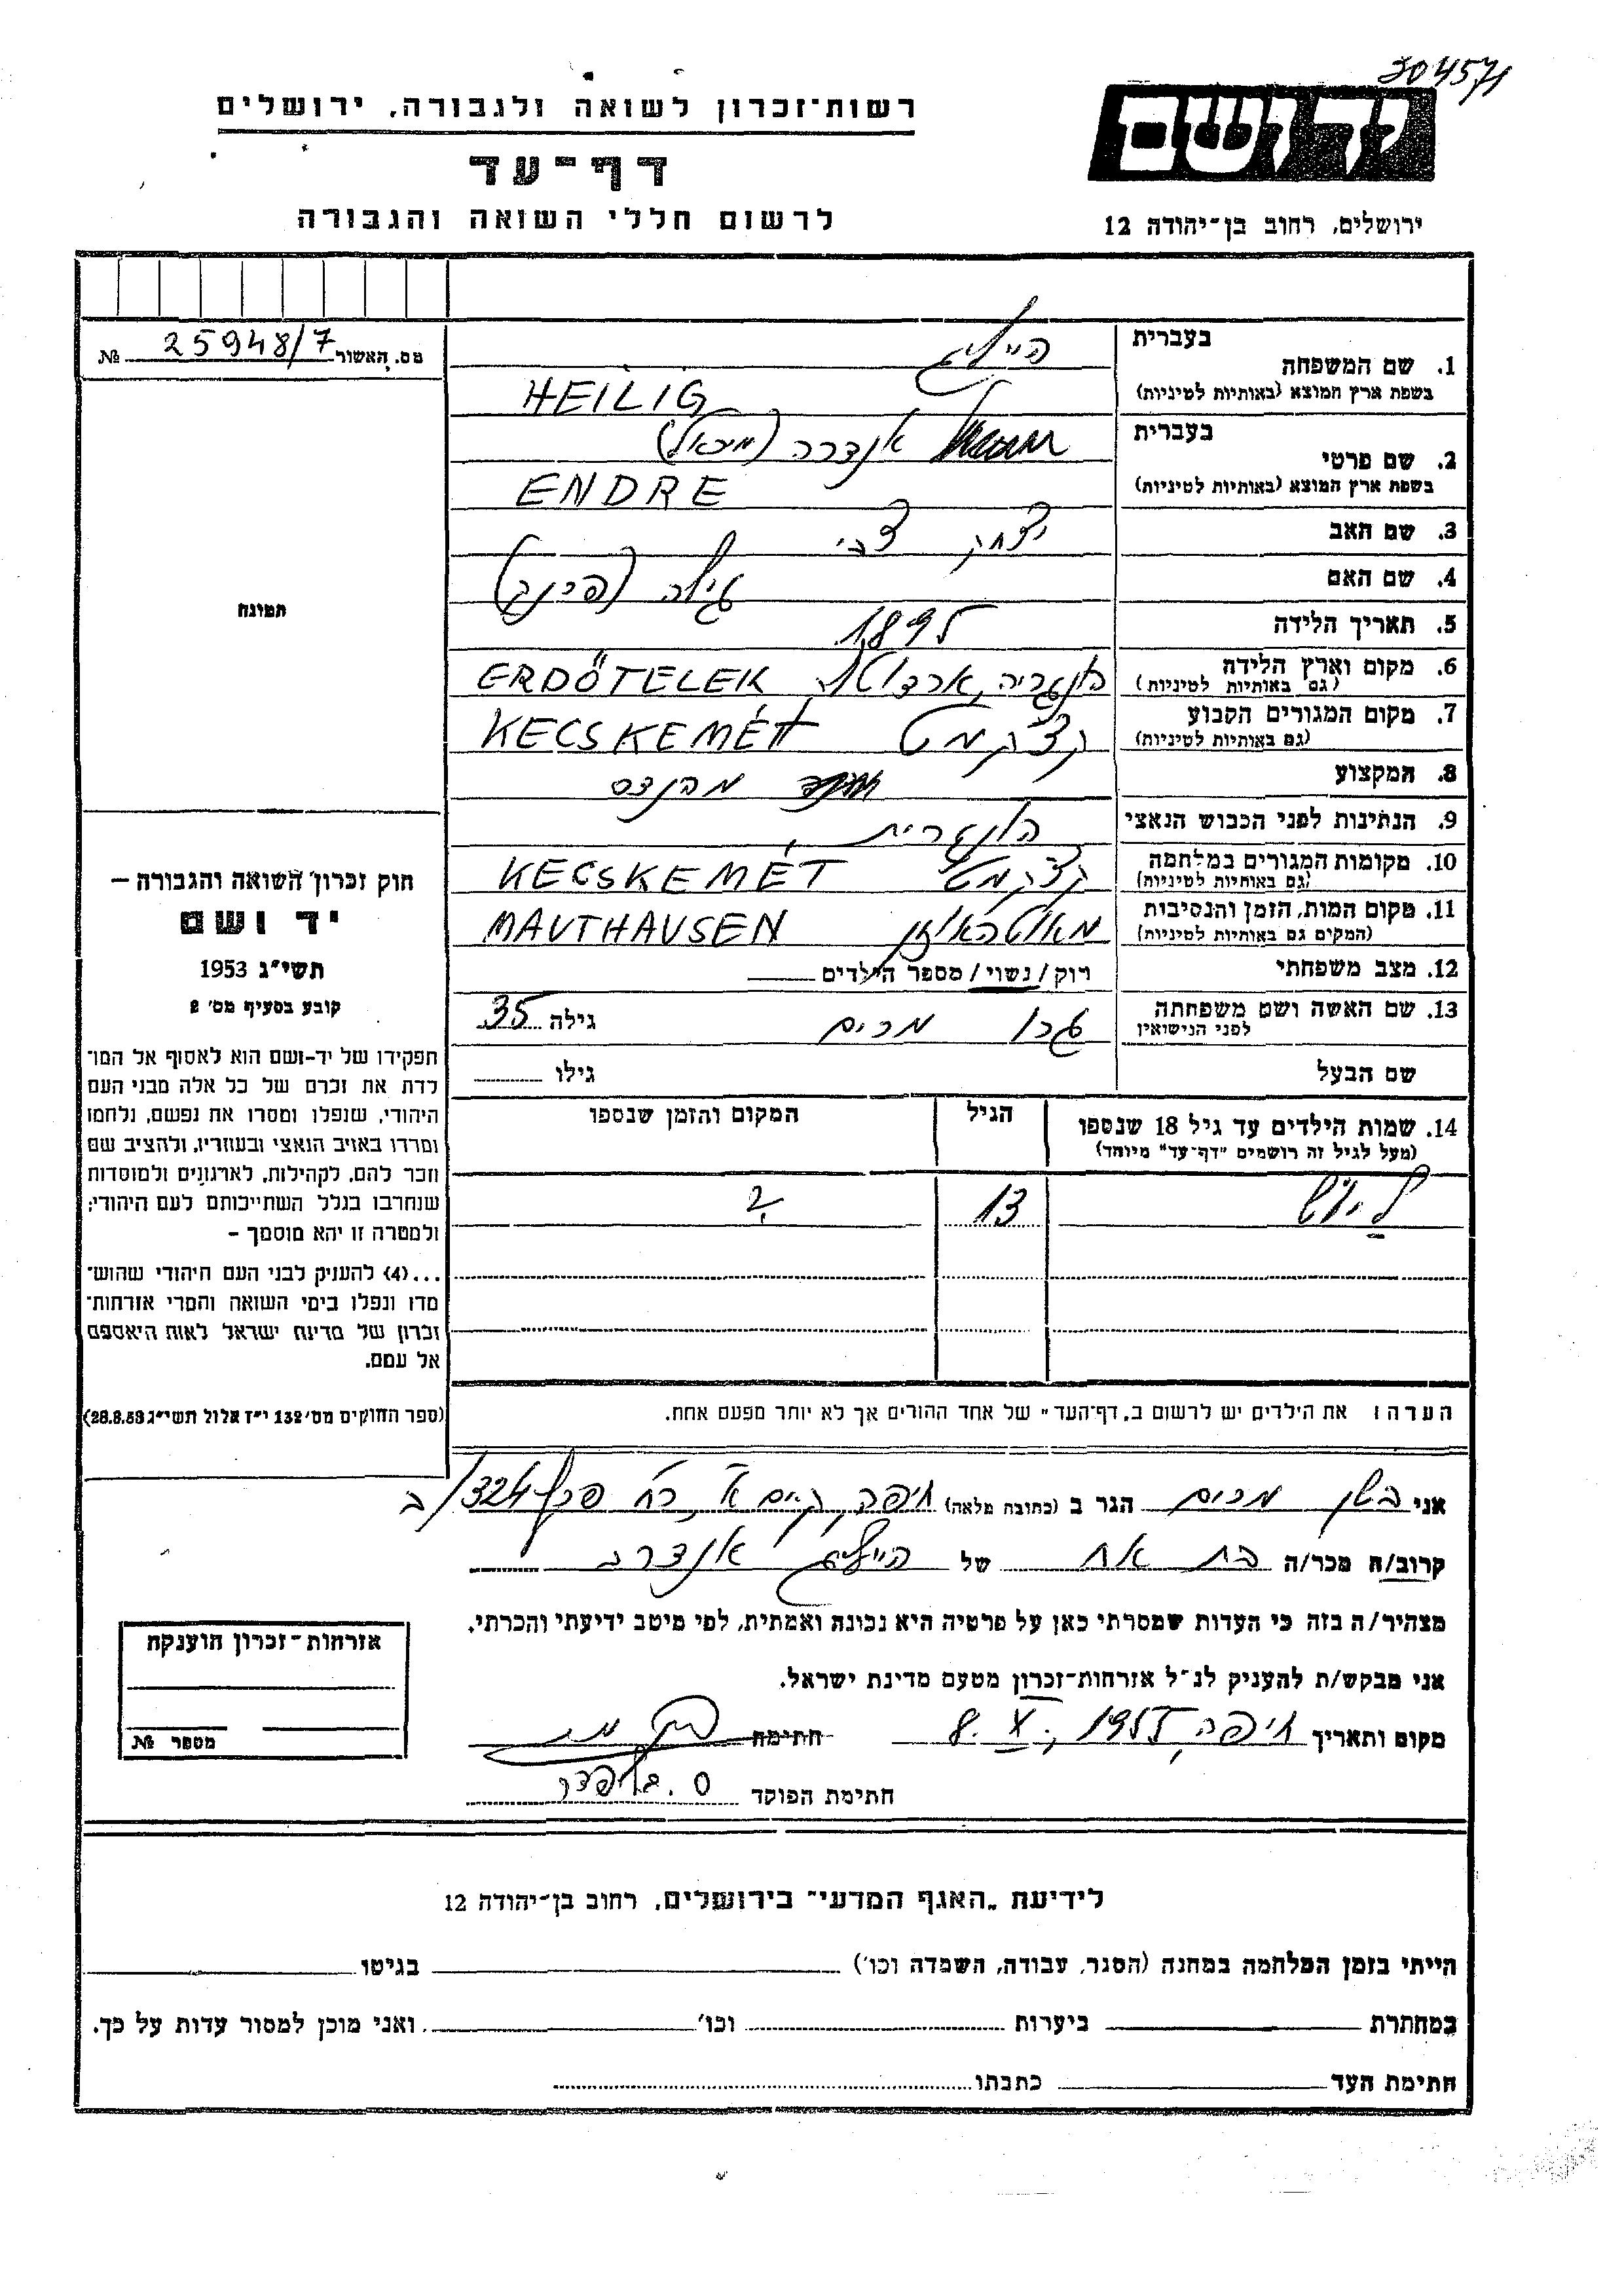 304571
רשות־זכרון לשואה ולגבורה, ירושלים
יד ושם
דף־עד
לרשום חללי השואה והגבורה
ירושלים, רחוב בן־יהודה 12
מס. האשור 25948/7 №
בעברית
1. שם המשפחה הייליג
בשפת ארץ המוצא (באותיות לטיניות) HEILIG
בעברית
2. שם פרטי אנדרה (מיכאל)
בשפת ארץ המוצא (באותיות לטיניות) ENDRE
3. שם האב יצחק צבי
4. שם האם גילה
5. תאריך הלידה 1895
6. מקום וארץ הלידה הונגריה, ERDÖTELEK
(גם באותיות לטיניות)
7. מקום המגורים הקבוע קצ'קמט KECSKEMÉT
(גם באותיות לטיניות)
8. המקצוע מהנדס
9. הנתינות לפני הכבוש הנאצי הונגרית
10. מקומות המגורים במלחמה קצקמט KECSKEMÉT
(גם באותיות לטיניות)
11. מקום המות, הזמן והנסיבות מאוטהאוזן MAUTHAUSEN
(המקום גם באותיות לטיניות)
12. מצב משפחתי רוק/נשוי/מספר הילדים
13. שם האשה ושם משפחתה גילה 35
לפני הנישואין
שם הבעל גילו
תמונה
חוק זכרון השואה והגבורה –
יד ושם
תשי״ג 1953
קובע בסעיף מס׳ 2
תפקידו של יד-ושם הוא לאסוף אל המו־
לדת את זכרם של כל אלה מבני העם
היהודי, שנפלו ומסרו את נפשם, נלחמו
ומרדו באויב הנאצי ובעוזריו, ולהציב שם
וזכר להם, לקהילות, לארגונים ולמוסדות
שנחרבו בגלל השתייכותם לעם היהודי;
ולמטרה זו יהא מוסמך –
...(4) להעניק לבני העם היהודי שהוש־
מדו ונפלו בימי השואה והמרי אזרחות־
זכרון של מדינת ישראל לאות היאספם
אל עמם.
(ספר החוקים מס׳ 132 י״ז אלול תשי״ג 28.8.53)
14. שמות הילדים עד גיל 18 שנספו הגיל המקום והזמן שנספו
(מעל לגיל זה רושמים "דף־עד" מיוחד)
13 ?
הערה: את הילדים יש לרשום ב„דף־העד" של אחד ההורים אך לא יותר מפעם אחת.
אני הגר ב (כתובת מלאה) חיפה, 324/ב
קרוב/ה מכר/ה בת אח של הייליג אנדרה
מצהיר/ה בזה כי העדות שמסרתי כאן על פרטיה היא נכונה ואמתית, לפי מיטב ידיעתי והכרתי.
אני מבקש/ת להעניק לנ״ל אזרחות־זכרון מטעם מדינת ישראל.
מקום ותאריך חיפה, 1955, 8. X חתימה
חתימת הפוקד
אזרחות־זכרון הוענקה
מספר №
לידיעת „האגף המדעי״ בירושלים, רחוב בן־יהודה 12
הייתי בזמן המלחמה במחנה (הסגר, עבודה, השמדה וכו׳) בגיטו
במחתרת ביערות וכו׳ ואני מוכן למסור עדות על כך.
חתימת העד כתבתו